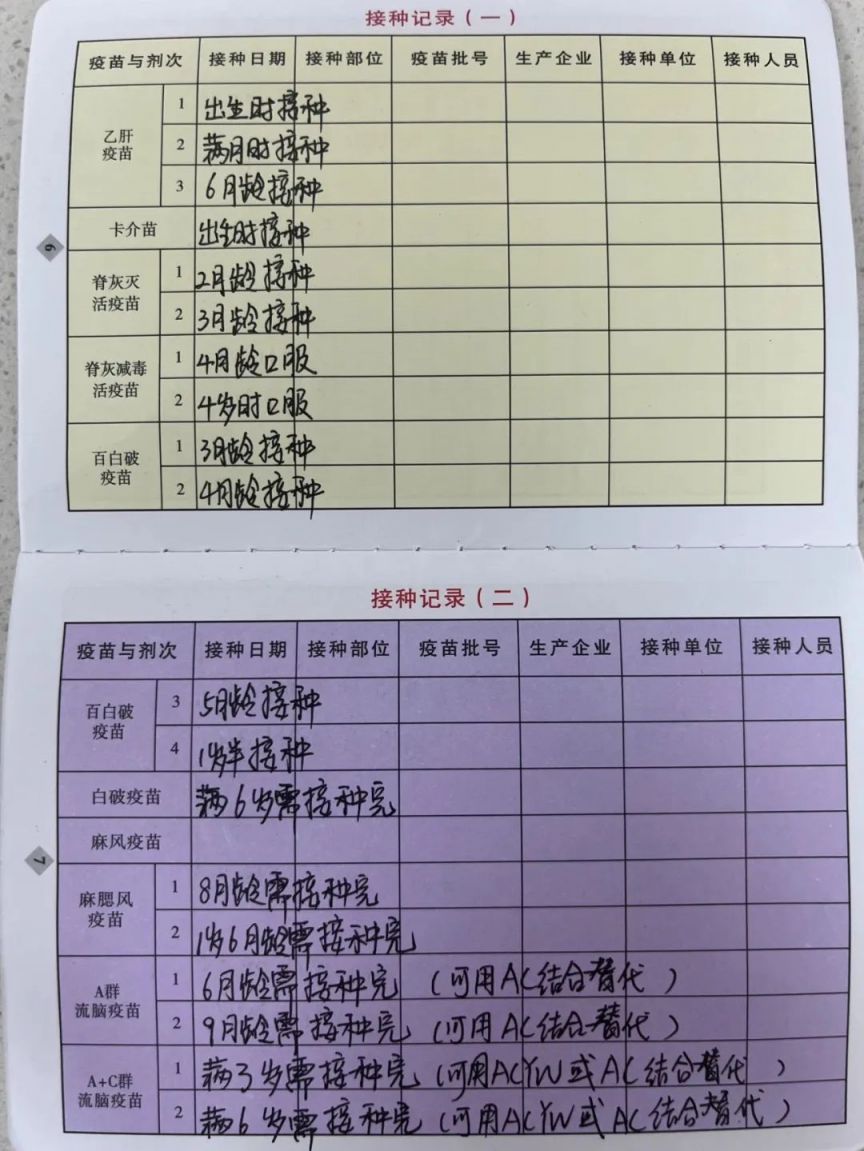 接种记录（一）
疫苗与剂次 接种日期 接种部位 疫苗批号 生产企业 接种单位 接种人员
乙肝疫苗 1 出生时接种
2 满月时接种
3 6月龄接种
卡介苗 出生时接种
脊灰灭活疫苗 1 2月龄接种
2 3月龄接种
脊灰减毒活疫苗 1 4月龄口服
2 4岁时口服
百白破疫苗 1 3月龄接种
2 4月龄接种
6
接种记录（二）
疫苗与剂次 接种日期 接种部位 疫苗批号 生产企业 接种单位 接种人员
百白破疫苗 3 5月龄接种
4 1岁半接种
白破疫苗 满6岁需接种完
麻风疫苗
麻腮风疫苗 1 8月龄需接种完
2 1岁6月龄需接种完
A群流脑疫苗 1 6月龄需接种完（可用AC结合替代）
2 9月龄需接种完（可用AC结合替代）
A+C群流脑疫苗 1 满3岁需接种完（可用ACYW或AC结合替代）
2 满6岁需接种完（可用ACYW或AC结合替代）
7